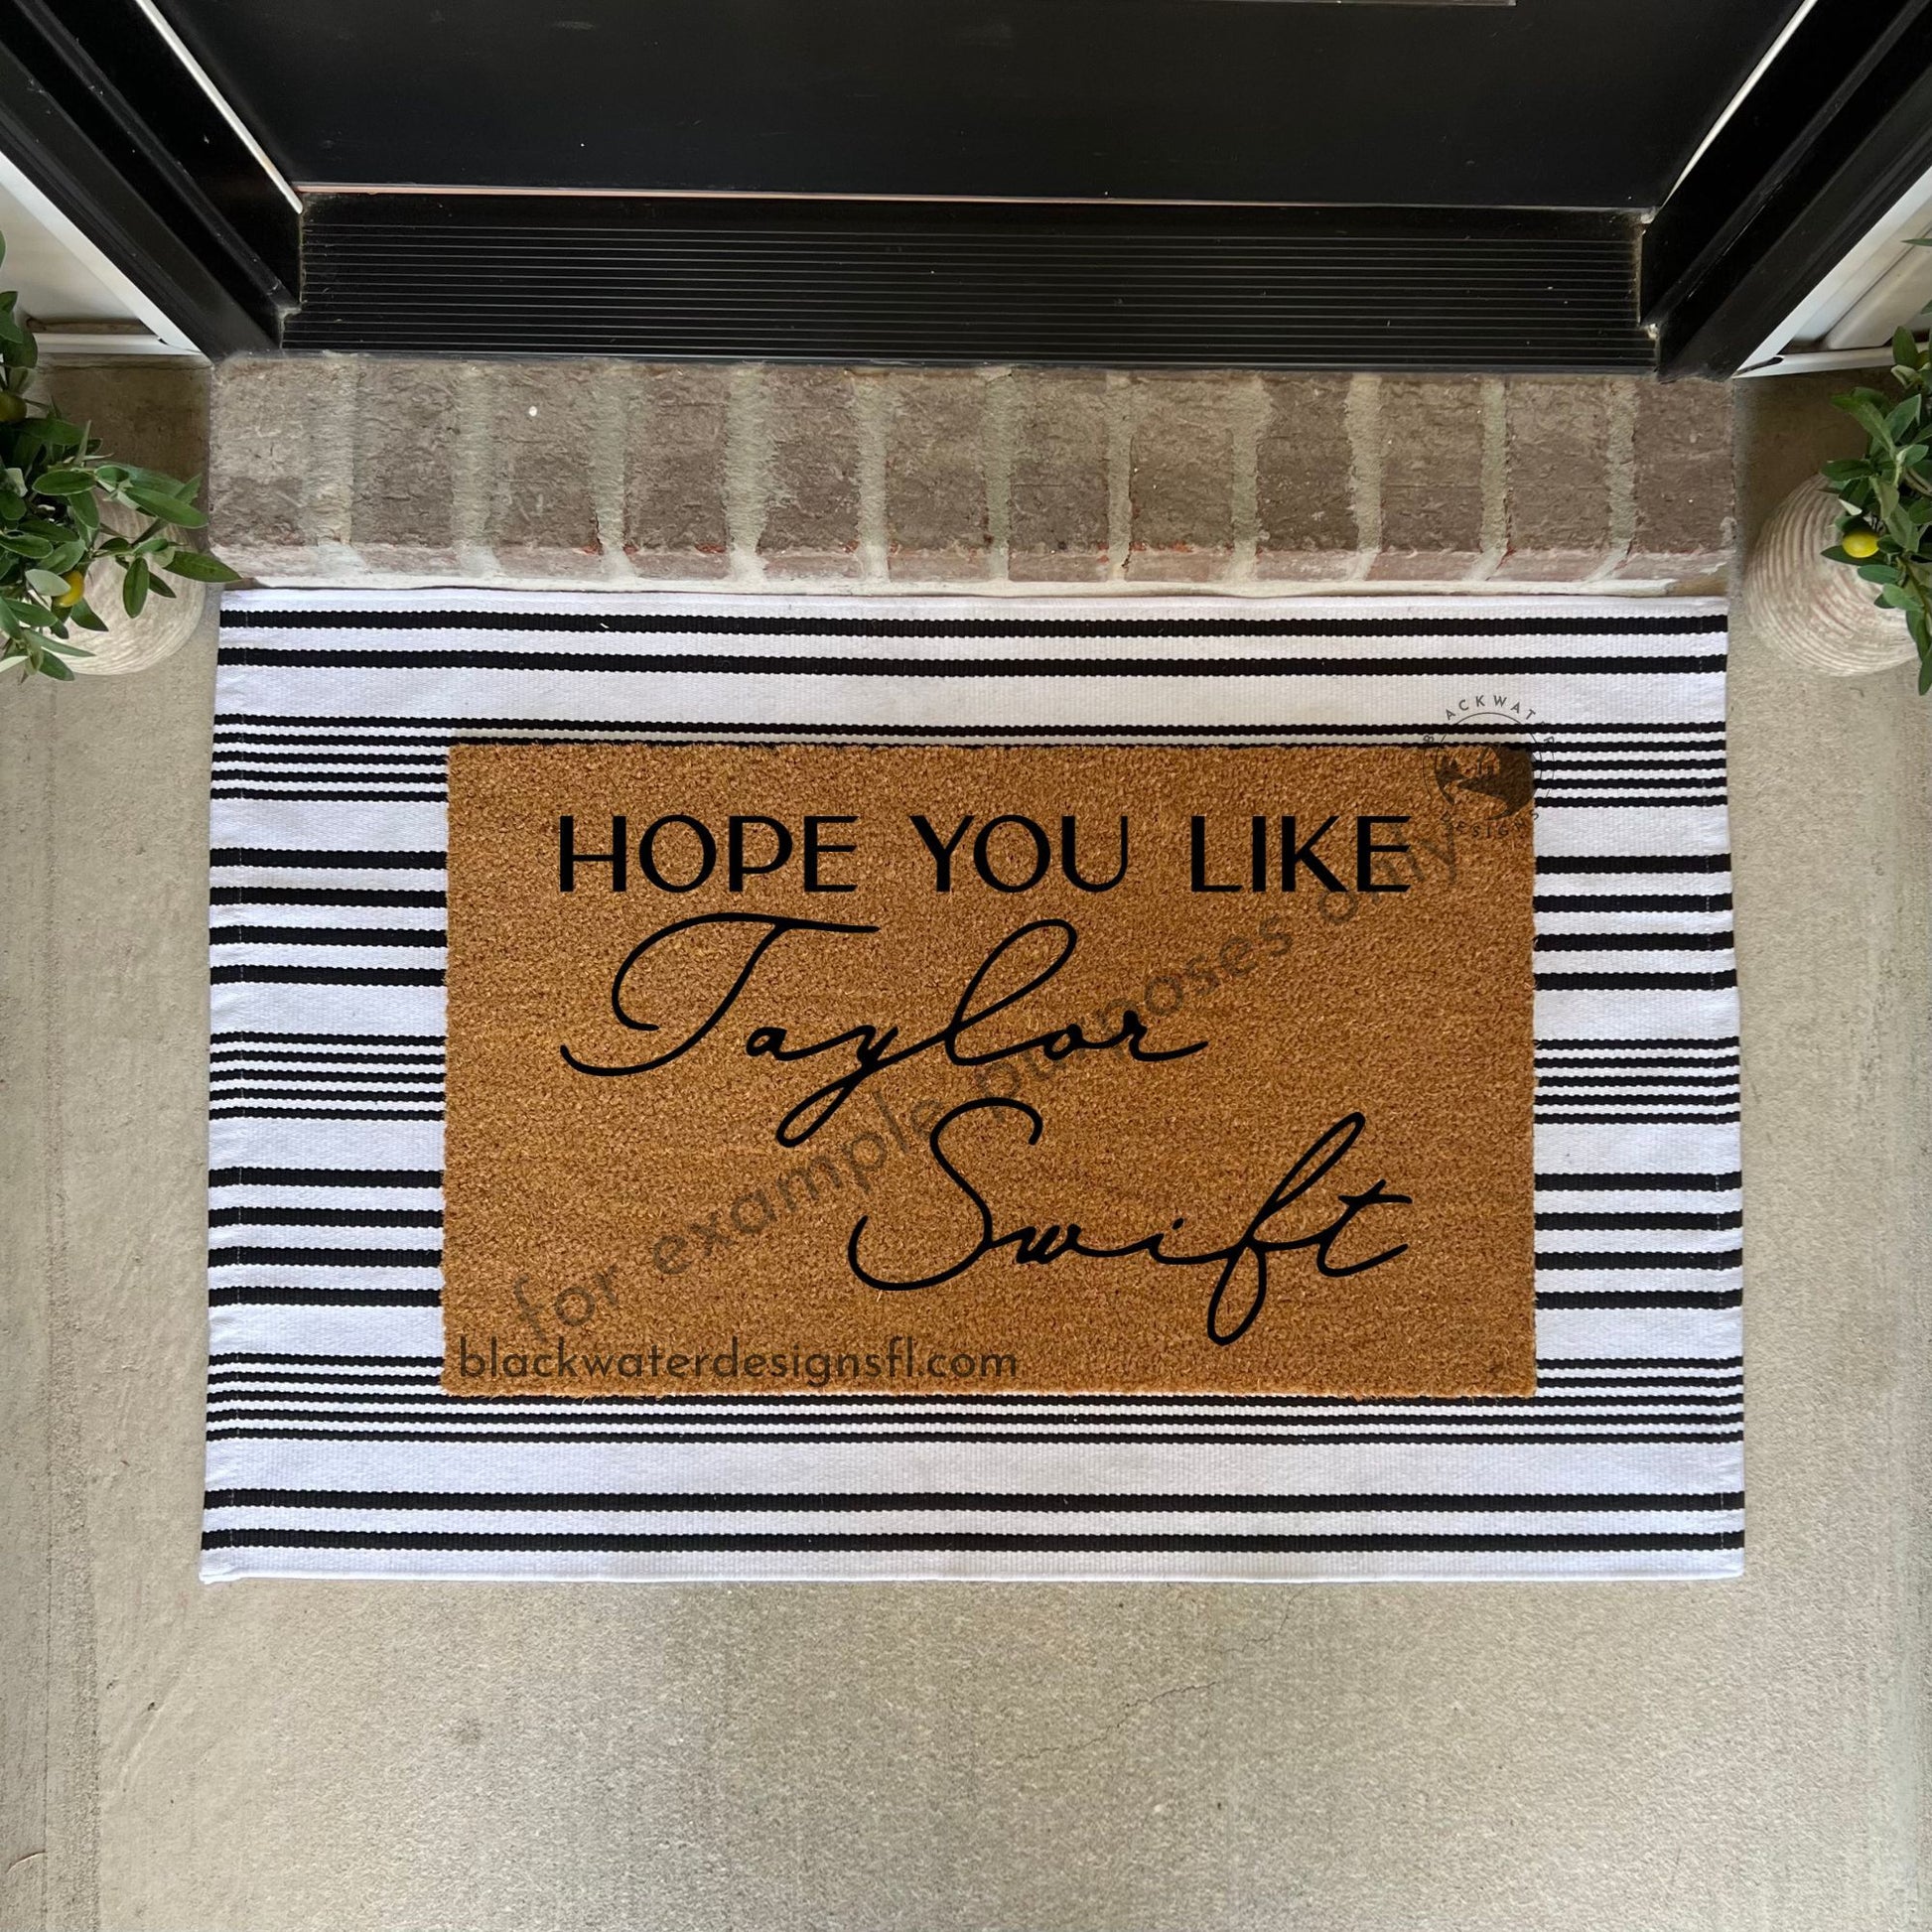 BLACKWATER DESIGNS
HOPE YOU LIKE
Taylor
Swift
for example purposes only
blackwaterdesignsfl.com